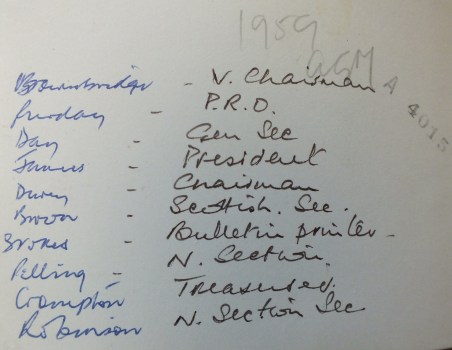 1959
AGM
A 4015
Brownbridge - V. Chairman
Gunday - P.R.O.
Day - Gen Sec
James - President
Davey - Chairman
Brown - Scottish. Sec.
Stokes - Bulletin printer -
Pelling - N. Section.
Crompton Treasurer.
Robinson N. Section Sec